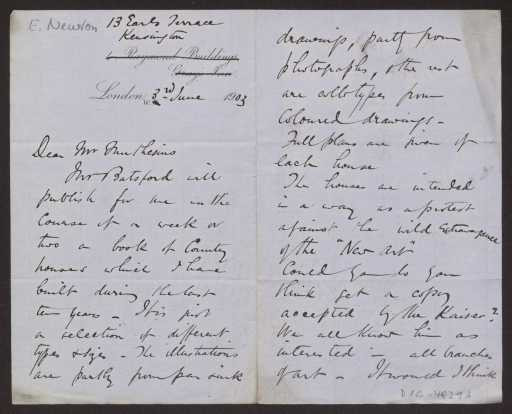 E. Newton
13 Earls Terrace
Kensington
4 Raymond Buildings
Grays Inn
London, W. 3rd June 1903
Dear Mr Muthesius
Mr Batsford will
publish for me in the
course of a week or
two a book of Country
houses which I have
built during the last
ten years - It is just
a selection of different
types & styles - The illustrations
are partly from pen & ink
drawings, partly from
photographs, & the rest
are collotypes from
coloured drawings -
Full plans are given of
each house
The houses are intended
in a way as a protest
against the wild extravagance
of the "New Art"
Could you do you
think get a copy
accepted by the Kaiser?
We all know him as
interested in all branches
of art - It would I think